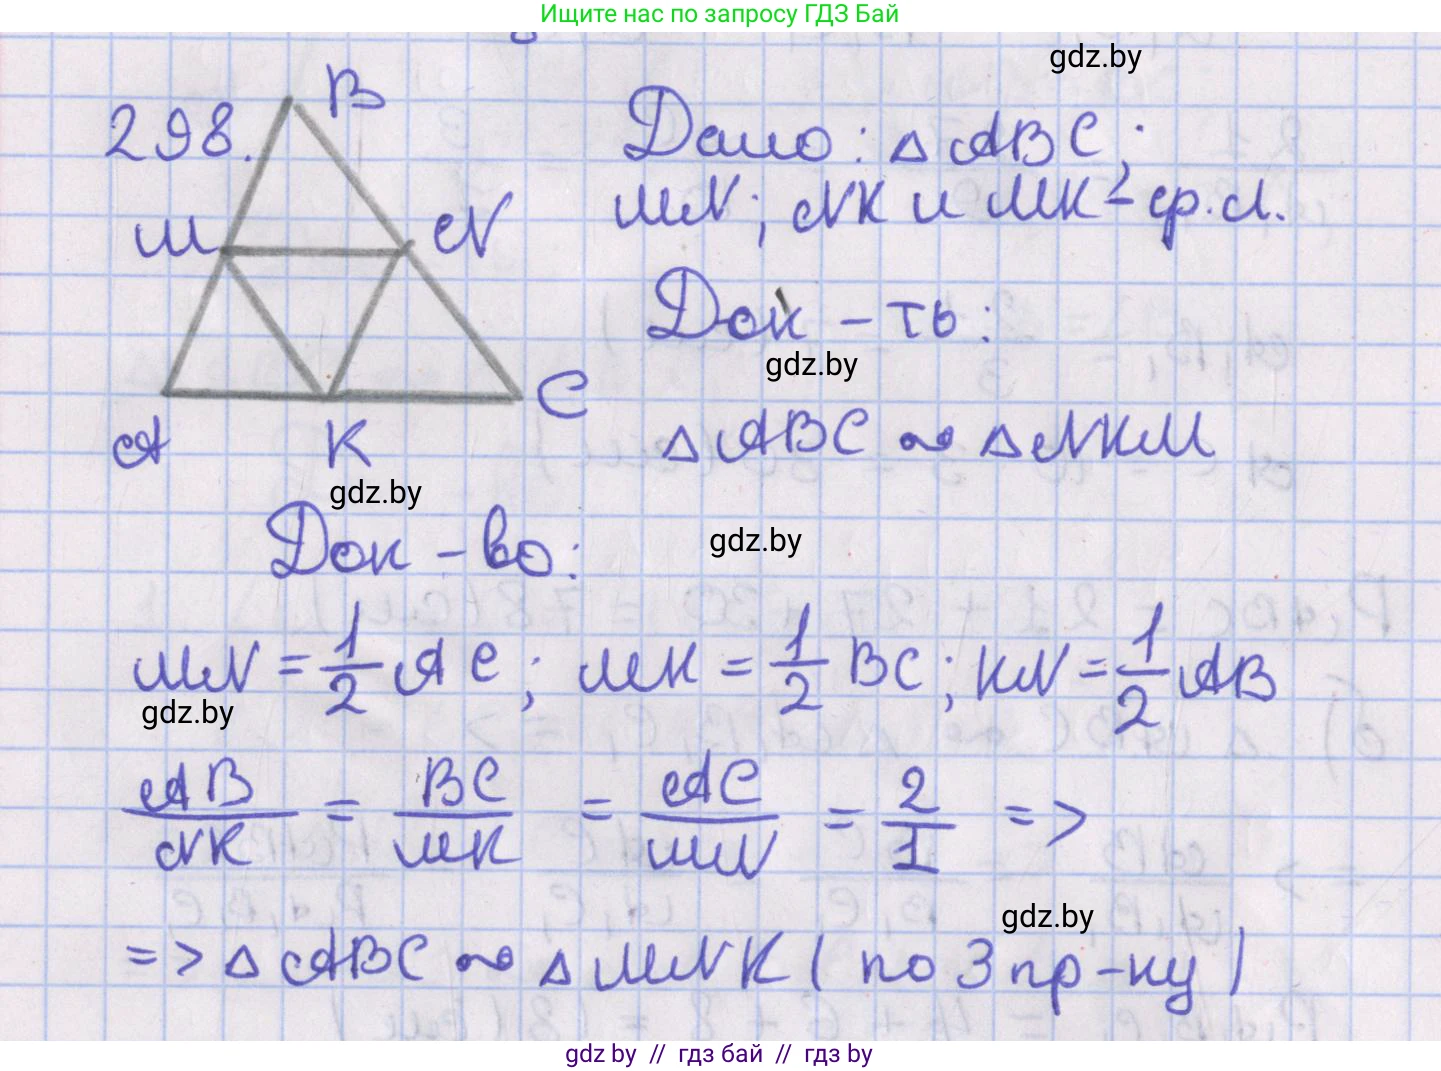 Ищите нас по запросу ГДЗ Бай
gdz.by
298.
B
Дано: △ABC;
M
N
MN; NK и MK - ср. л.
Док - ть:
gdz.by
C
A
K
△ABC ∾ △NKM
gdz.by
Док - во:
gdz.by
MN = 1/2 AC; MK = 1/2 BC; KN = 1/2 AB
gdz.by
AB/NK = BC/MK = AC/MN = 2/1 =>
gdz.by
=> △ABC ∾ △MNK (по 3 пр-ку)
gdz by // гдз бай // гдз by